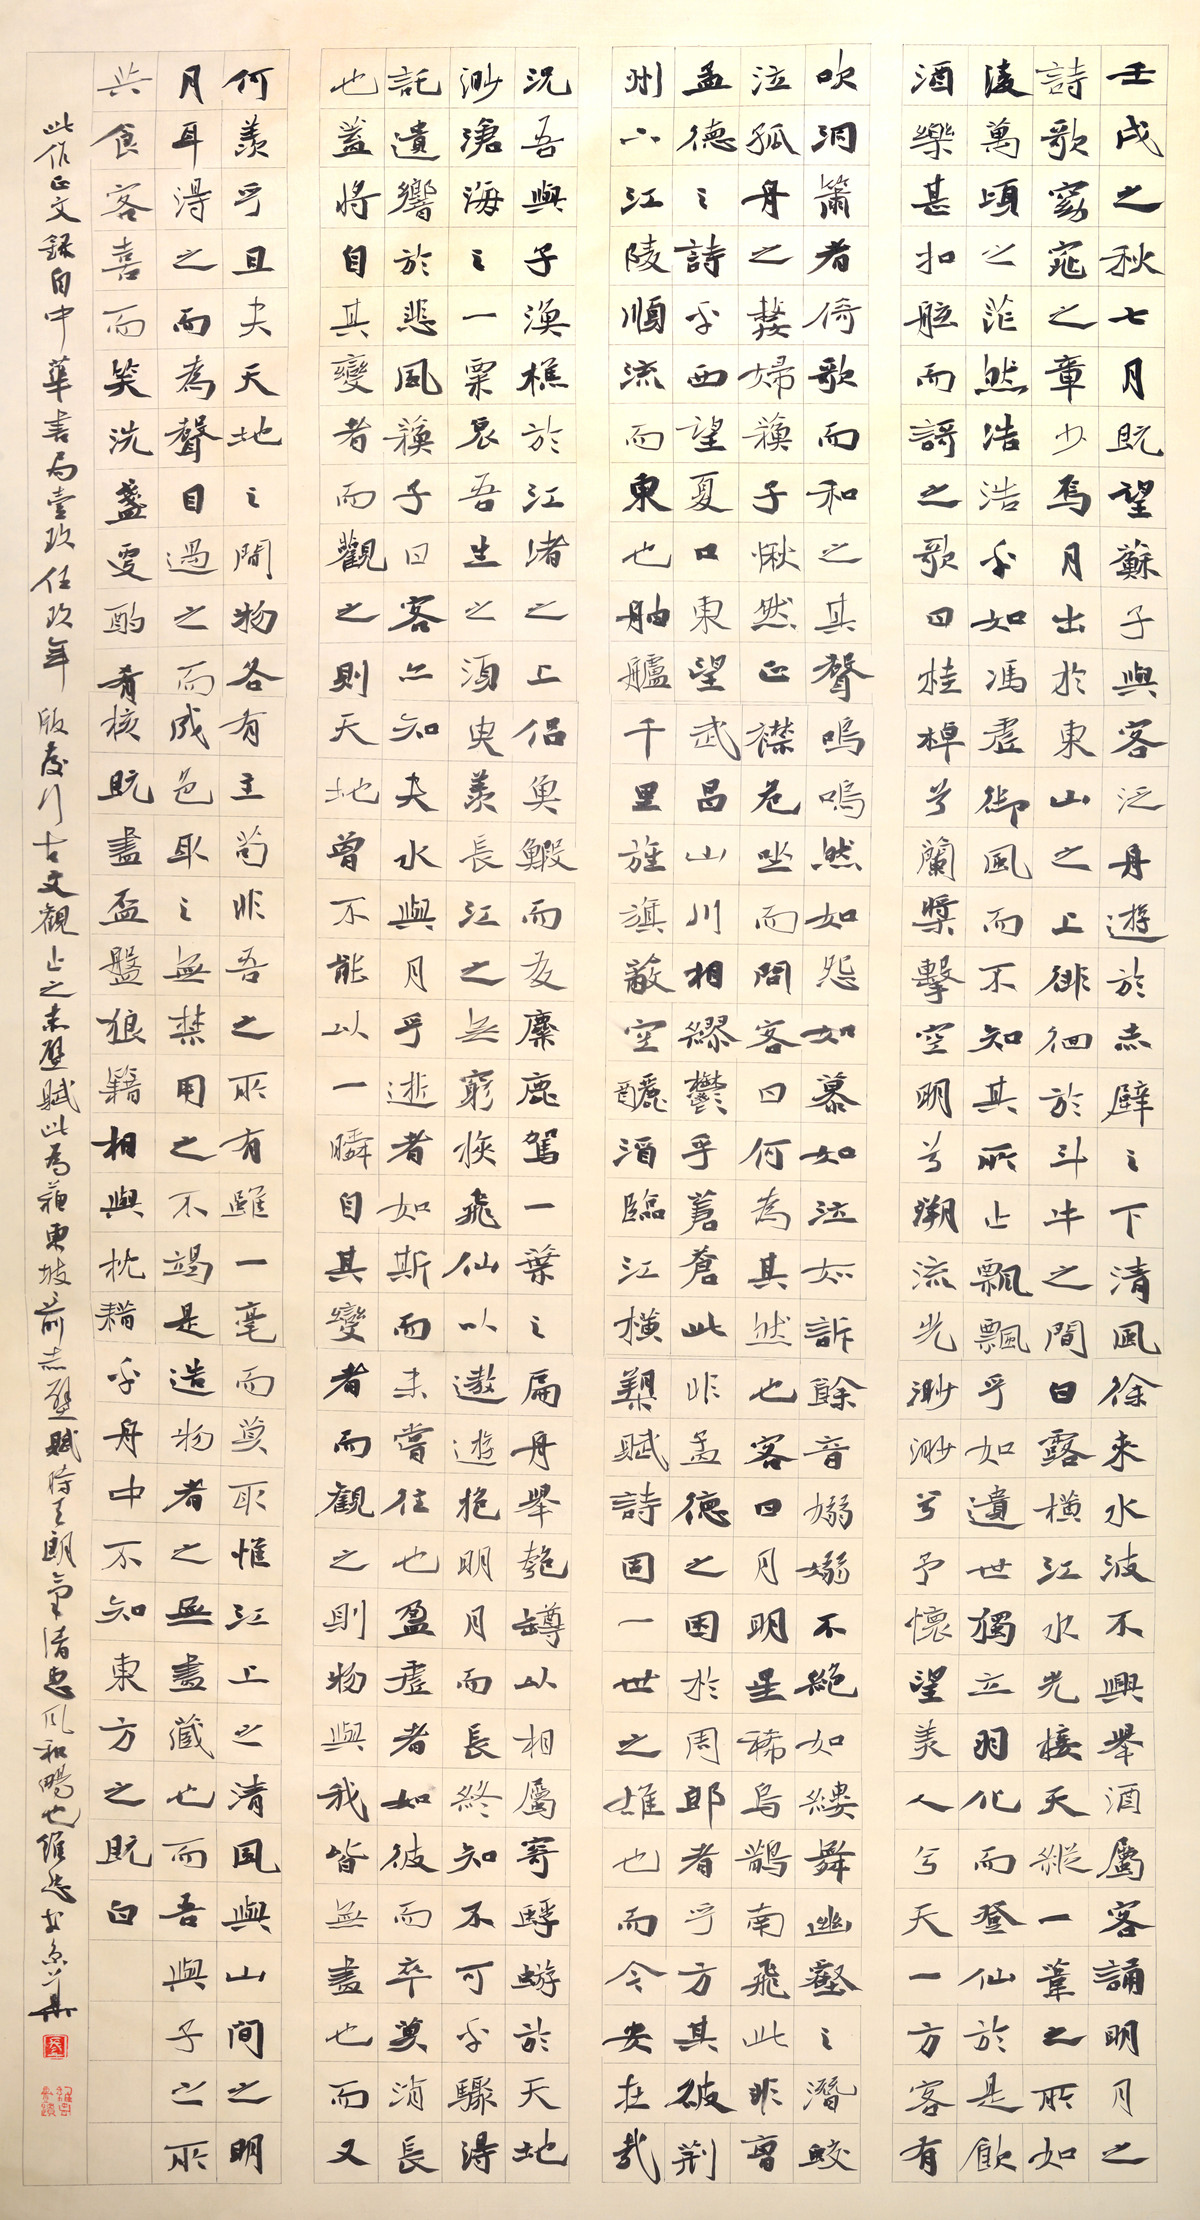 壬戌之秋七月既望蘇子與客泛舟遊於赤壁之下清風徐來水波不興舉酒屬客誦明月之
詩歌窈窕之章少焉月出於東山之上徘徊於斗牛之間白露橫江水光接天縱一葦之所如
淩萬頃之茫然浩浩乎如馮虛御風而不知其所止飄飄乎如遺世獨立羽化而登仙於是飲
酒樂甚扣舷而謌之歌曰桂棹兮蘭槳擊空明兮溯流光渺渺兮予懷望美人兮天一方客有
吹洞簫者倚歌而和之其聲嗚嗚然如怨如慕如泣如訴餘音嫋嫋不絕如縷舞幽壑之潛蛟
泣孤舟之嫠婦蘇子愀然正襟危坐而問客曰何為其然也客曰月明星稀烏鵲南飛此非曹
孟德之詩乎西望夏口東望武昌山川相繆鬱乎蒼蒼此非孟德之困於周郎者乎方其破荊
州下江陵順流而東也舳艫千里旌旗蔽空釃酒臨江橫槊賦詩固一世之雄也而今安在哉
況吾與子漁樵於江渚之上侶魚鰕而友麋鹿駕一葉之扁舟舉匏罇以相屬寄蜉蝣於天地
渺滄海之一粟哀吾生之須臾羨長江之無窮挾飛仙以遨遊抱明月而長終知不可乎驟得
託遺響於悲風蘇子曰客亦知夫水與月乎逝者如斯而未嘗往也盈虛者如彼而卒莫消長
也蓋將自其變者而觀之則天地曾不能以一瞬自其變者而觀之則物與我皆無盡也而又
何羨乎且夫天地之間物各有主苟非吾之所有雖一毫而莫取惟江上之清風與山間之明
月耳得之而為聲目遇之而成色取之無禁用之不竭是造物者之無盡藏也而吾與子之所
共食客喜而笑洗盞更酌肴核既盡盃盤狼籍相與枕藉乎舟中不知東方之既白
此作正文錄自中華書局壹玖伍玖年版發行古文觀止之赤壁賦此為蘇東坡前赤壁賦時天朗氣清惠風和暢也維忠於京華